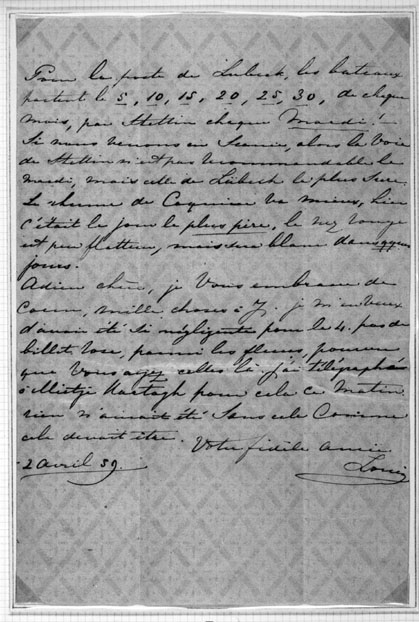 Pour la poste de Lubeck, les bateaux
partent le 5, 10, 15, 20, 25, 30, de chaque
mois, par Stettin chaque Mardi!
Si nous venons en, alors la Voie
de Stettin n'est pas recommendable le
mardi, mais celle de Lübeck le plus Sure.
Le rhume de va mieux, hier
c'était le jour le plus pire, le nez rouge
est peu flatteur, mais sera blanc dans qques
jours.
Adieu cher, je Vous embrasse de
Coeur, mille choses à. je m'en veux
d'avoir été si négligente pour le 4. pas de
billet rose, parmi les fleurs, pourvu
que Vous ayez celles là. j'ai télégraphié
à pour cela ce Matin
rien n'aurait été Sans cela Comme
cela devait être.
Votre fidèle amie
2 avril 59. Louise